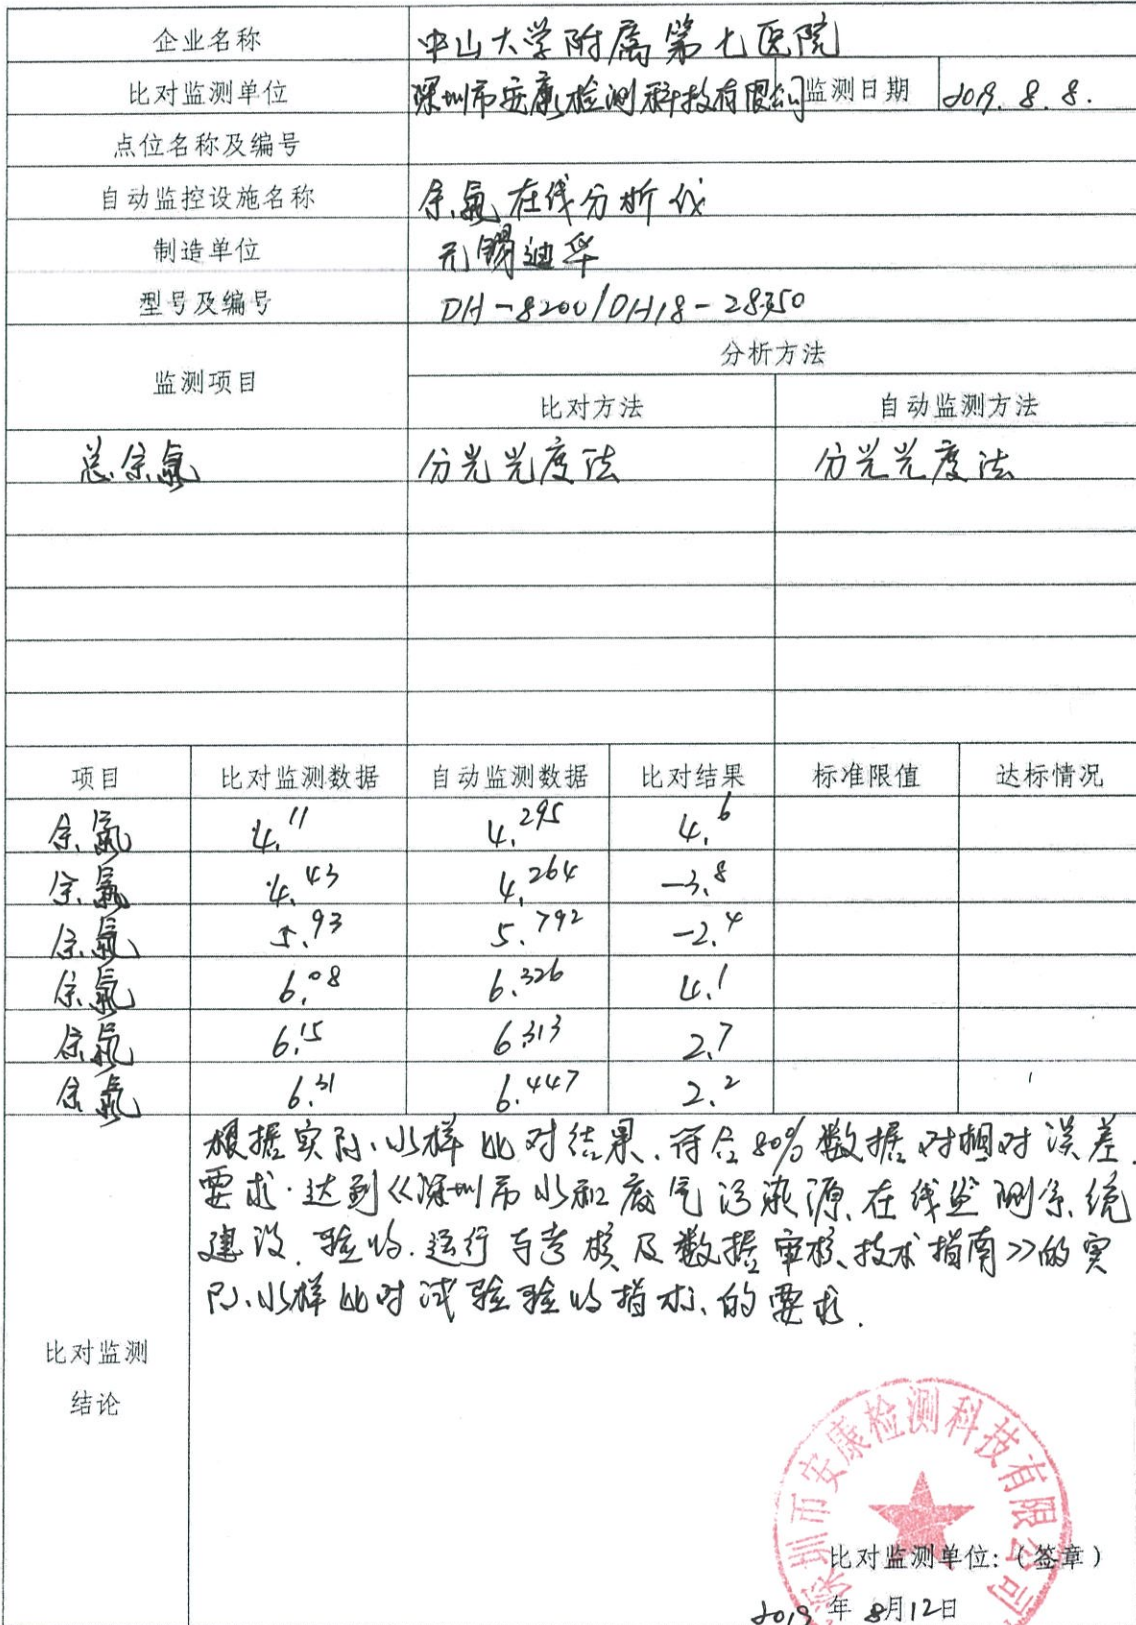 企业名称 中山大学附属第七医院
比对监测单位 深圳市安康检测科技有限公司 监测日期 2019.8.8.
点位名称及编号
自动监控设施名称 余氯在线分析仪
制造单位 无锡迪华
型号及编号 DH-8200/DH18-28350
监测项目 分析方法
比对方法 自动监测方法
总余氯 分光光度法 分光光度法
项目 比对监测数据 自动监测数据 比对结果 标准限值 达标情况
余氯 4.11 4.295 4.6
余氯 4.43 4.264 -3.8
余氯 5.93 5.792 -2.4
余氯 6.08 6.326 4.1
余氯 6.15 6.313 2.7
余氯 6.31 6.447 2.2
比对监测
结论
根据实际水样比对结果,符合80%数据对相对误差
要求.达到《深圳市水和废气污染源在线监测系统
建设、验收、运行与考核及数据审核技术指南》的实
际水样比对试验验收指标的要求.
深圳市安康检测科技有限公司
比对监测单位:(签章)
2019年8月12日